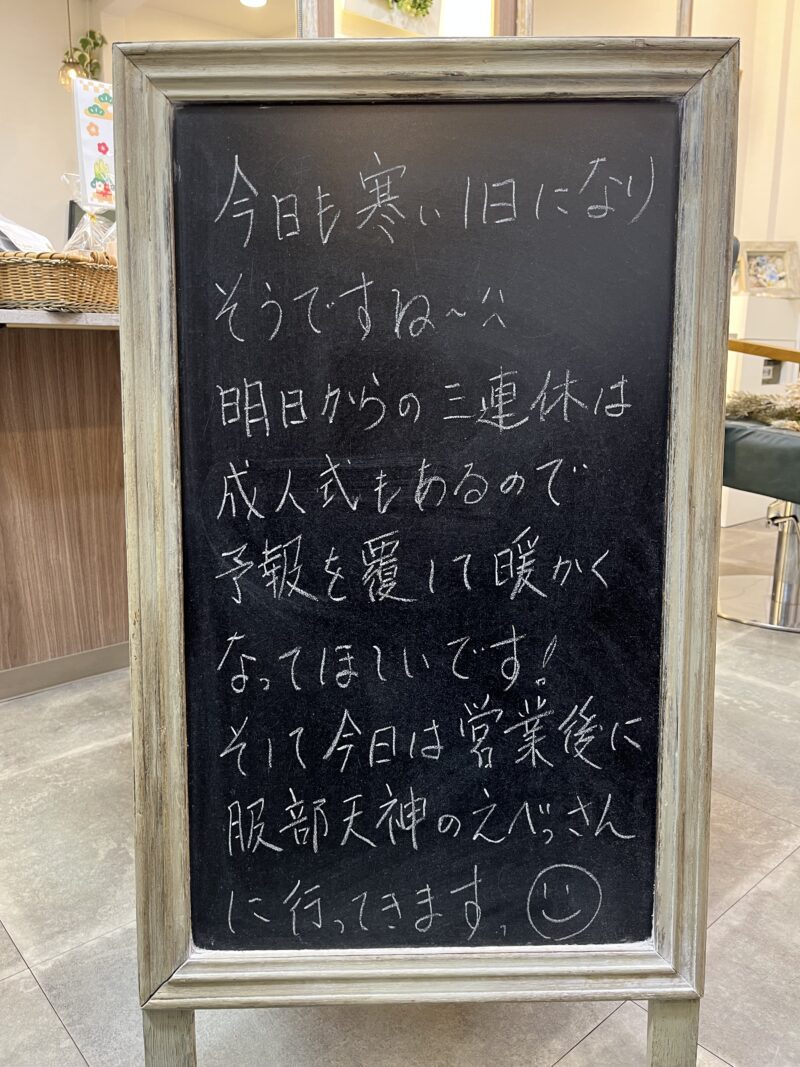 今日も寒い1日になり
そうですね~^^
明日からの三連休は
成人式もあるので
予報を覆して暖かく
なってほしいです!
そして今日は営業後に
服部天神のえべっさん
に行ってきます。